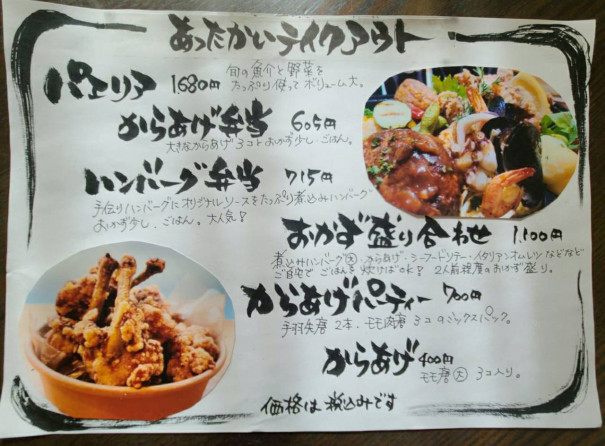 あったかいテイクアウト
パエリア 1680円
旬の魚介と野菜を
たっぷり使ってボリューム大。
からあげ弁当 605円
大きなからあげ3コとおかず少し、ごはん。
ハンバーグ弁当 715円
手造りハンバーグにオリジナルソースをたっぷり煮込みハンバーグ
おかず少し、ごはん。大人気!
おかず盛り合わせ 1,100円
煮込みハンバーグ大・からあげ・シーフードソテー・イタリアンオムレツなどなど
ご自宅でごはんを炊けばOK! 2人前程度のおかず盛り。
からあげパーティー 700円
手羽先唐2本、モモ肉唐3コのミックスパック。
からあげ 400円
モモ唐大 3コ入り。
価格は税込みです